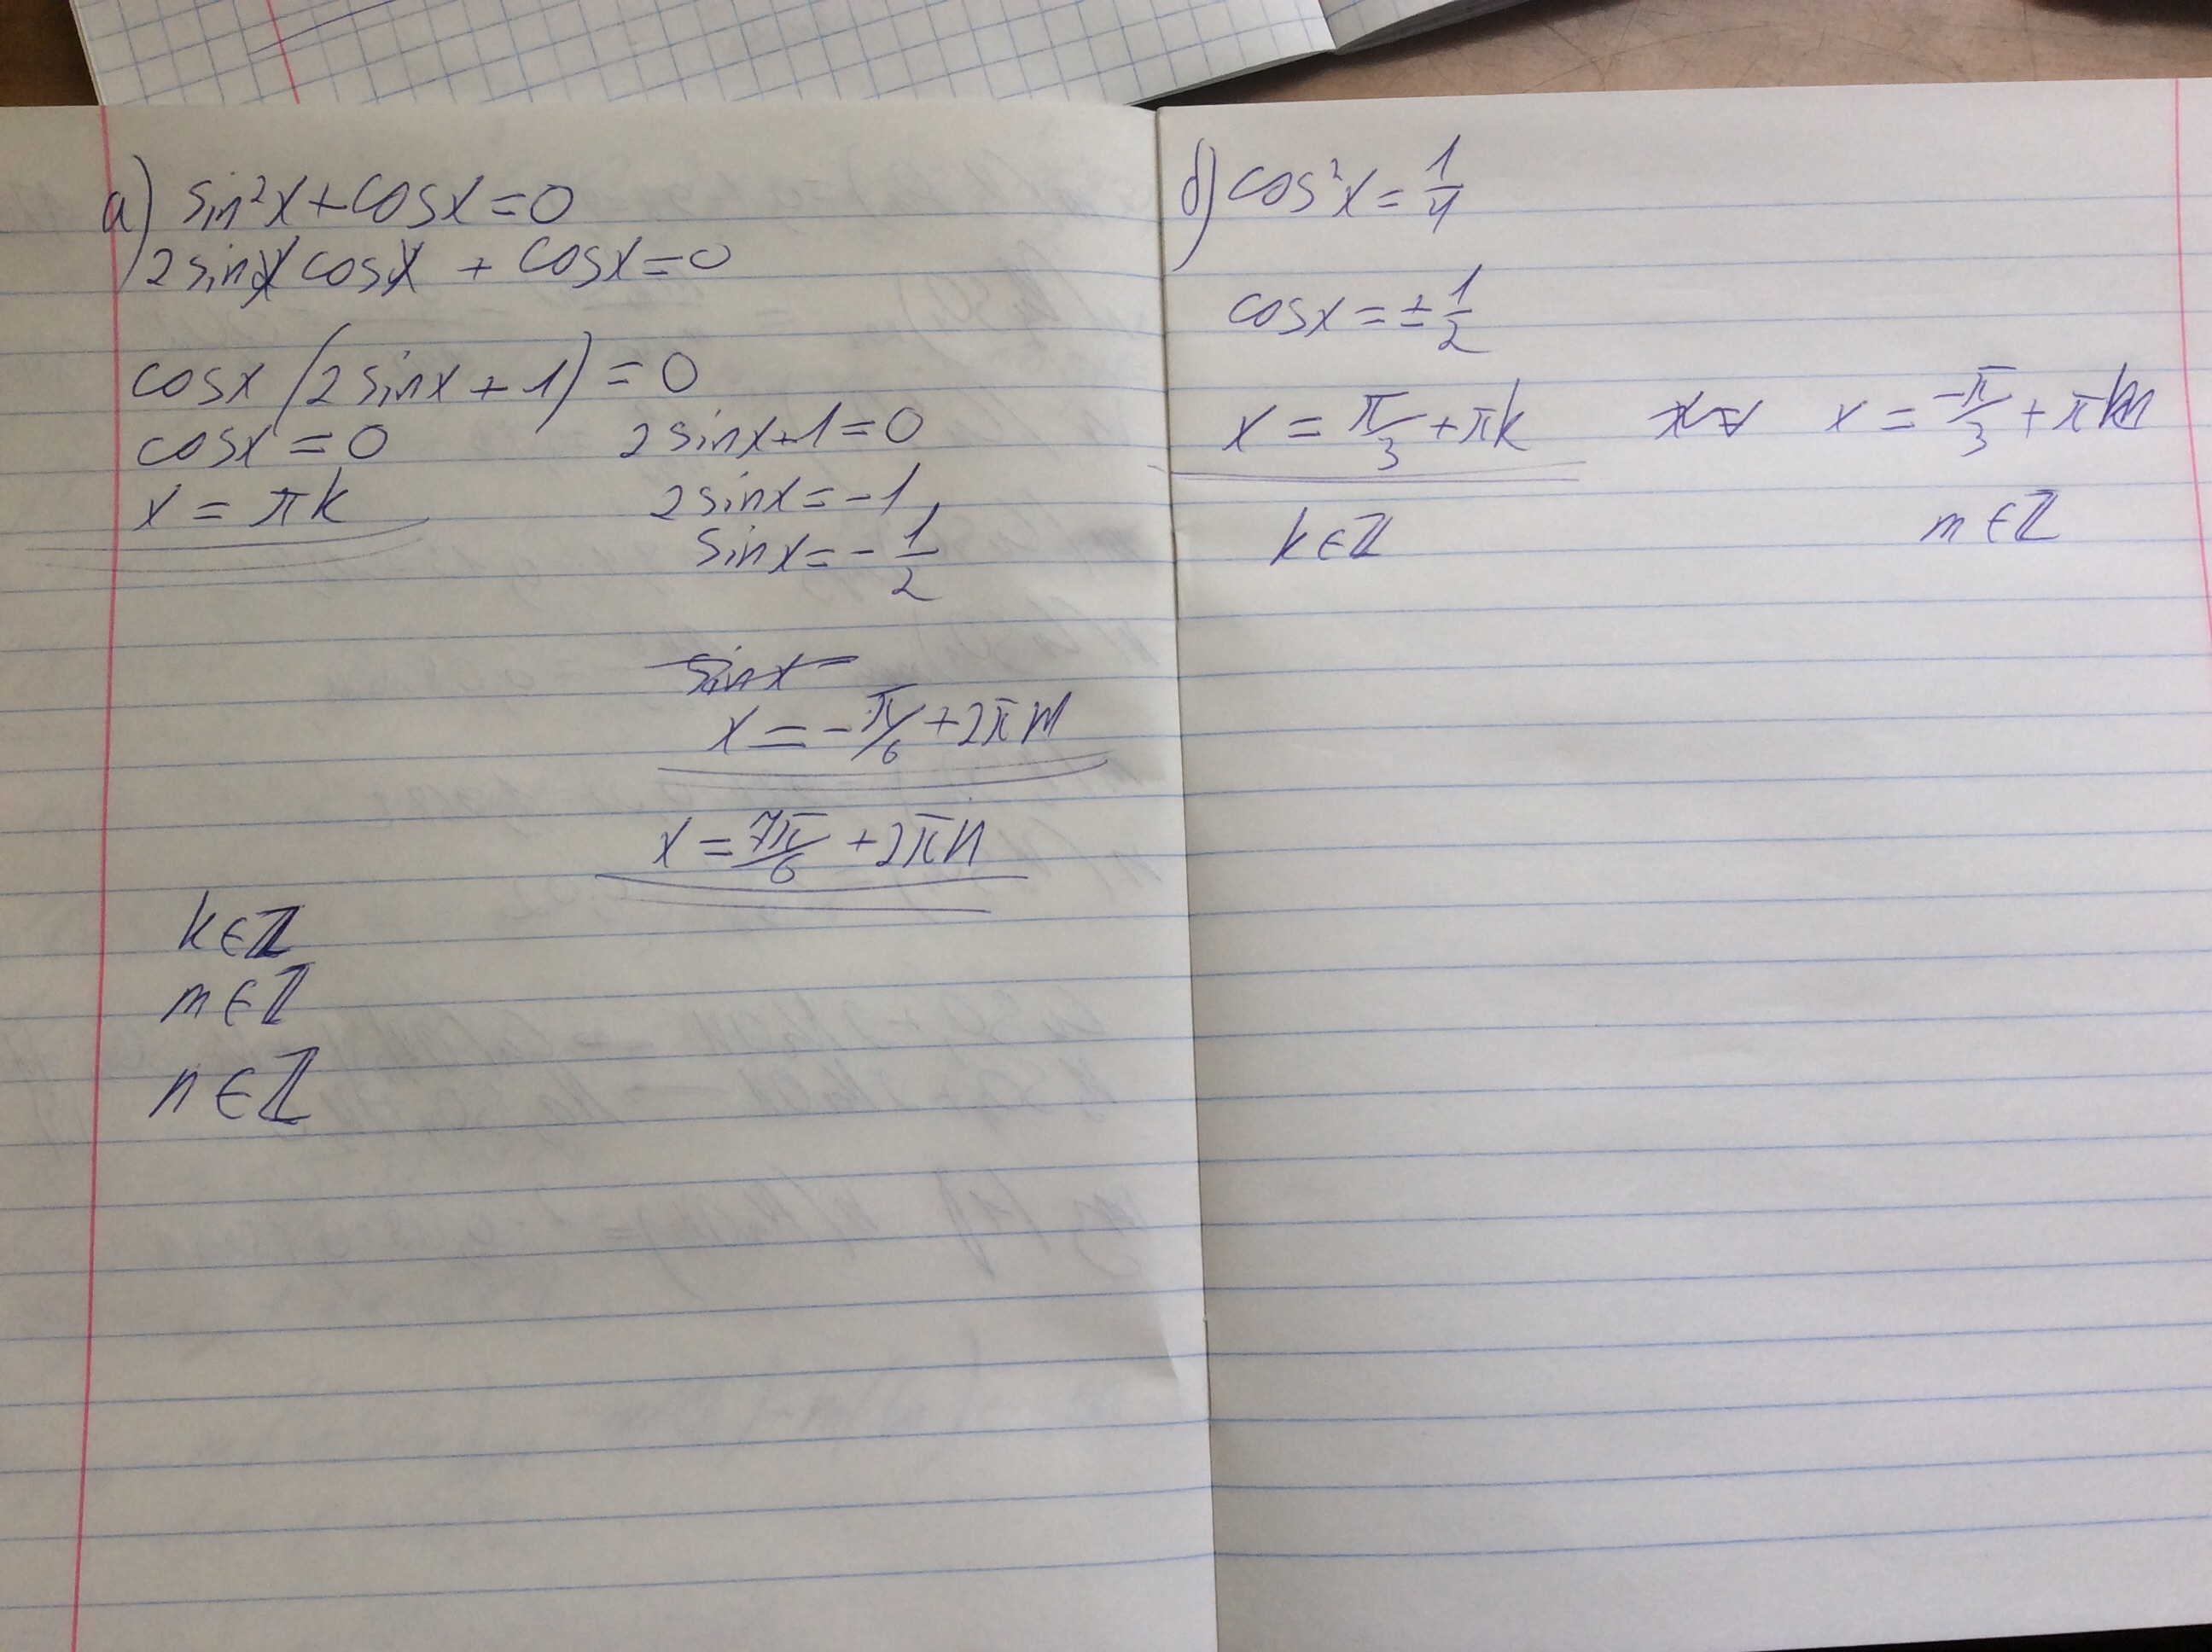 а) sin²x+cosx=0
2sinx cosx + cosx=0
cosx (2sinx+1)=0
cosx=0 2sinx+1=0
x = πk 2sinx=-1
sinx=-1/2
sinx
x=-π/6+2πm
x=7π/6+2πn
k∈ℤ
m∈ℤ
n∈ℤ
б) cos²x=1/4
cosx=±1/2
x=π/3+πk x= x=-π/3+πm
k∈ℤ m∈ℤ